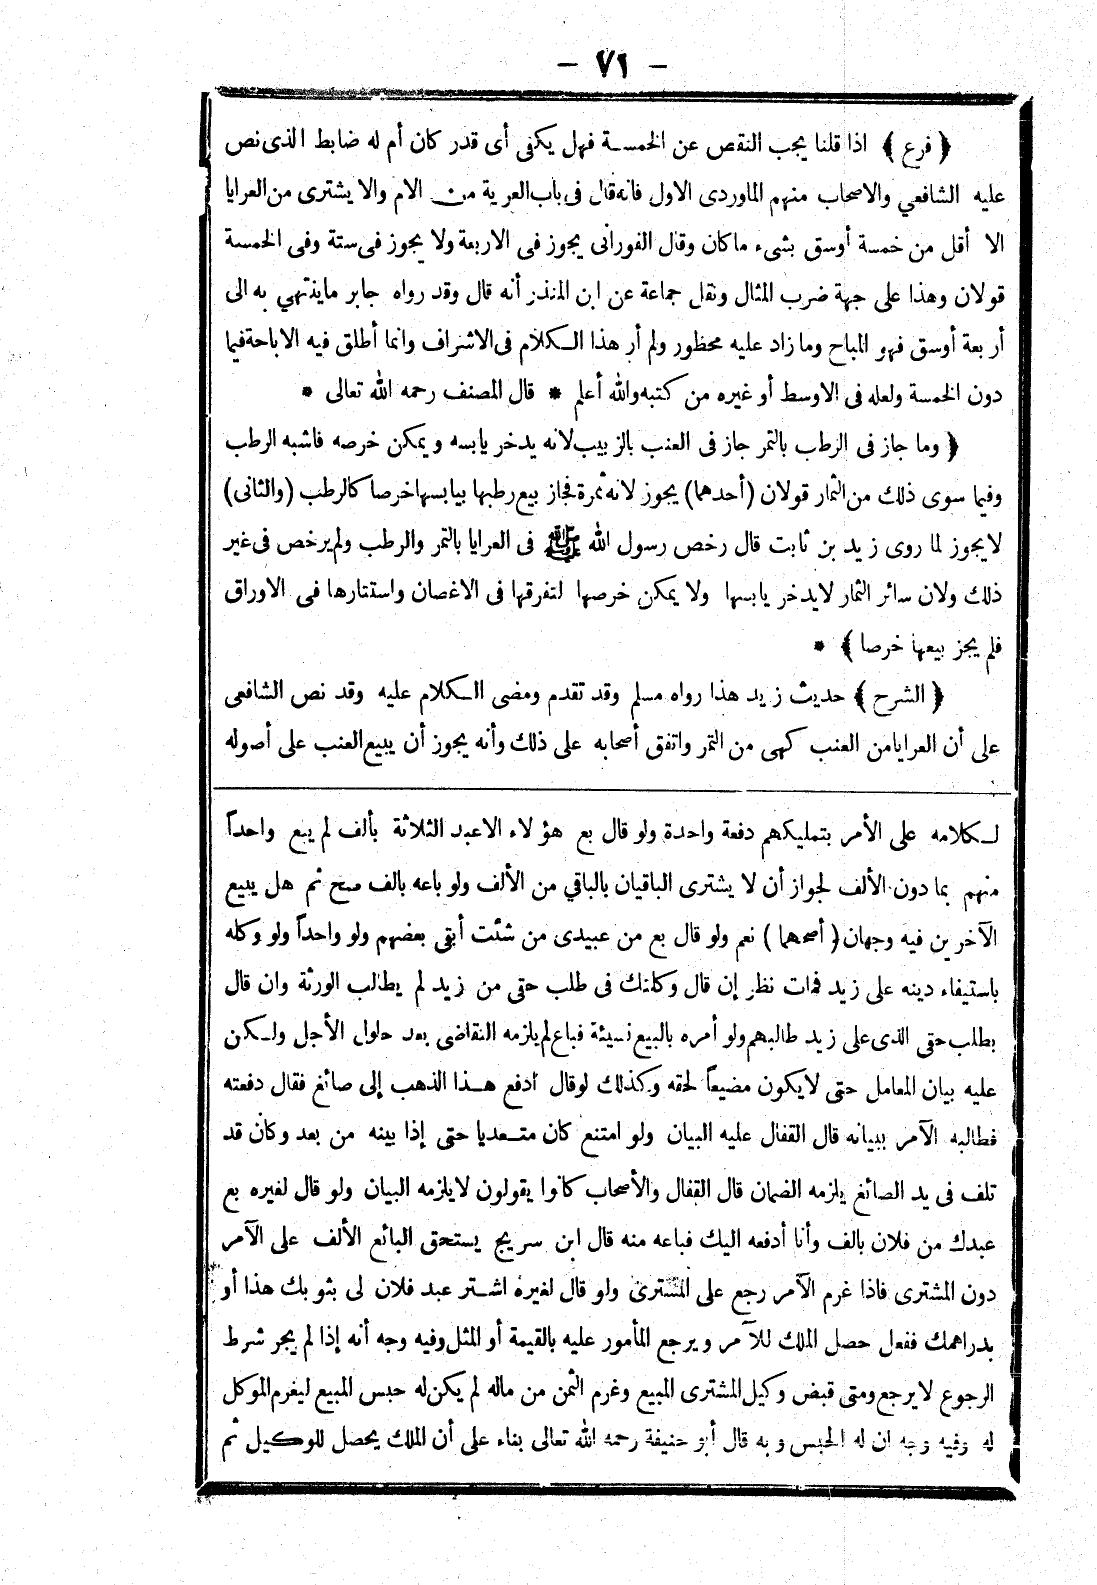 — ٧١ —
﴿ فرع ﴾ اذا قلنا يجب النقص عن الخمسة فهل يكفى أى قدر كان أم له ضابط الذى نص
عليه الشافعي والاصحاب منهم الماوردى الاول فانه قال فى باب العرية من الام والا يشترى من العرايا
الا أقل من خمسة أوسق بشىء ما كان وقال الفورانى يجوز فى الاربعة ولا يجوز فى ستة وفى الخمسة
قولان وهذا على جهة ضرب المثال ونقل جماعة عن ابن المنذر أنه قال وقد رواه جابر ما ينتهي به الى
أربعة أوسق فهو المباح وما زاد عليه محظور ولم أر هذا الكلام فى الاشراف وانما أطلق فيه الاباحة فيما
دون الخمسة ولعله فى الاوسط أو غيره من كتبه والله أعلم * قال المصنف رحمه الله تعالى *
﴿ وما جاز فى الرطب بالتمر جاز فى العنب بالزبيب لانه يدخر يابسه ويمكن خرصه فاشبه الرطب
وفيما سوى ذلك من الثمار قولان (أحدهما) يجوز لانه ثمرة فجاز بيع رطبها بيابسها خرصا كالرطب (والثانى)
لا يجوز لما روى زيد بن ثابت قال رخص رسول الله ﷺ فى العرايا بالتمر والرطب ولم يرخص فى غير
ذلك ولان سائر الثمار لا يدخر يابسها ولا يمكن خرصها لتفرقها فى الاغصان واستتارها فى الاوراق
فلم يجز بيعها خرصا ﴾ *
﴿ الشرح ﴾ حديث زيد هذا رواه مسلم وقد تقدم ومضى الكلام عليه وقد نص الشافعى
على أن العرايا من العنب كهى من التمر واتفق أصحابه على ذلك وأنه يجوز أن يبيع العنب على أصوله
لكلامه على الأمر بتمليكهم دفعة واحدة ولو قال بع هؤلاء الاعبد الثلاثة بألف لم يبع واحداً
منهم بما دون الألف لجواز أن لا يشترى الباقيان بالباقي من الألف ولو باعه بالف صح ثم هل يبيع
الآخرين فيه وجهان ( أصحهما ) نعم ولو قال بع من عبيدى من شئت أبقى بعضهم ولو واحداً ولو وكله
باستيفاء دينه على زيد فمات نظر إن قال وكلتك فى طلب حتى من زيد لم يطالب الورثة وان قال
بطلب حقى الذى على زيد طالبهم ولو أمره بالبيع نسيئة فباع لم يلزمه التقاضى بعد حلول الأجل ولكن
عليه بيان المعامل حتى لا يكون مضيعاً لحقه وكذلك لو قال ادفع هذا الذهب إلى صائغ فقال دفعته
فطالبه الآمر ببيانه قال القفال عليه البيان ولو امتنع كان متعديا حتى إذا بينه من بعد وكان قد
تلف فى يد الصائغ يلزمه الضمان قال القفال والأصحاب كانوا يقولون لا يلزمه البيان ولو قال لغيره بع
عبدك من فلان بالف وأنا أدفعه اليك فباعه منه قال ابن سريج يستحق البائع الألف على الآمر
دون المشترى فاذا غرم الآمر رجع على المشترى ولو قال لغيره اشتر عبد فلان لى بثوبك هذا أو
بدراهمك ففعل حصل الملك للآمر ويرجع المأمور عليه بالقيمة أو المثل وفيه وجه أنه إذا لم يجر شرط
الرجوع لا يرجع ومتى قبض وكيل المشترى المبيع وغرم الثمن من ماله لم يكن له حبس المبيع ليغرم الموكل
له وفيه وجه ان له الحبس وبه قال أبو حنيفة رحمه الله تعالى بناء على أن الملك يحصل للوكيل ثم